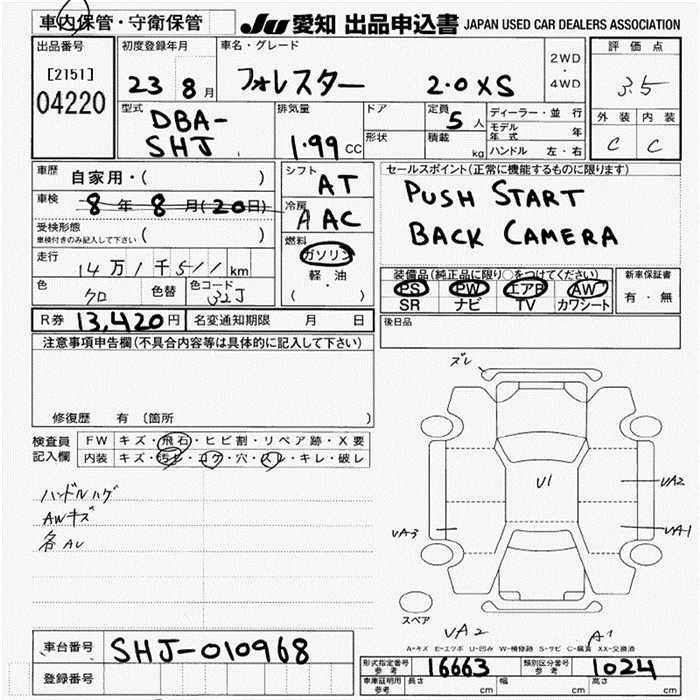 車内保管・守衛保管
JU 愛知 出品申込書 JAPAN USED CAR DEALERS ASSOCIATION
出品番号
[2151]
04220
初度登録年月
23 8月
車名・グレード
フォレスター 2.0XS
2WD
・
4WD
評価点
3.5
外装 内装
C C
型式
DBA-
SHJ
排気量
1.99 CC
ドア
形状
定員
5人
積載
kg
ディーラー・並行
モデル年式 年
ハンドル 左・右
車歴
自家用・( )
車検
8年 8月(20日)
受検形態
車検付きのみ記入して下さい ( )
走行
14万1千511km
色
クロ
色替
色コード
32J
シフト
AT
冷房
AAC
燃料
ガソリン
軽油
( ・ )
セールスポイント(正常に機能するものに限ります)
PUSH START
BACK CAMERA
装備品(純正品に限り○をつけてください)
PS PW エアB AW
SR ナビ TV カワシート
新車保証書
有・無
R券 13,420円 名変通知期限 月 日
後日品
注意事項申告欄(不具合内容等は具体的に記入して下さい)
修復歴 有 〔箇所 〕
検査員
記入欄
FW キズ・飛石・ヒビ割・リペア跡・X要
内装 キズ・汚レ・コゲ・穴・スレ・キレ・破レ
ハンドルハゲ
AWキズ
各AU
ズレ
U1
UA2
UA1
UA3
スペア
UA2
A1
A-キズ E-エクボ U-凹み W-補修跡 S-サビ C-腐食 XX-交換済
車台番号 SHJ-010968
登録番号
形式指定番号
参考
16663
類別区分番号
参考
1024
車庫証明用
参考
長さ cm 幅 cm 高さ cm